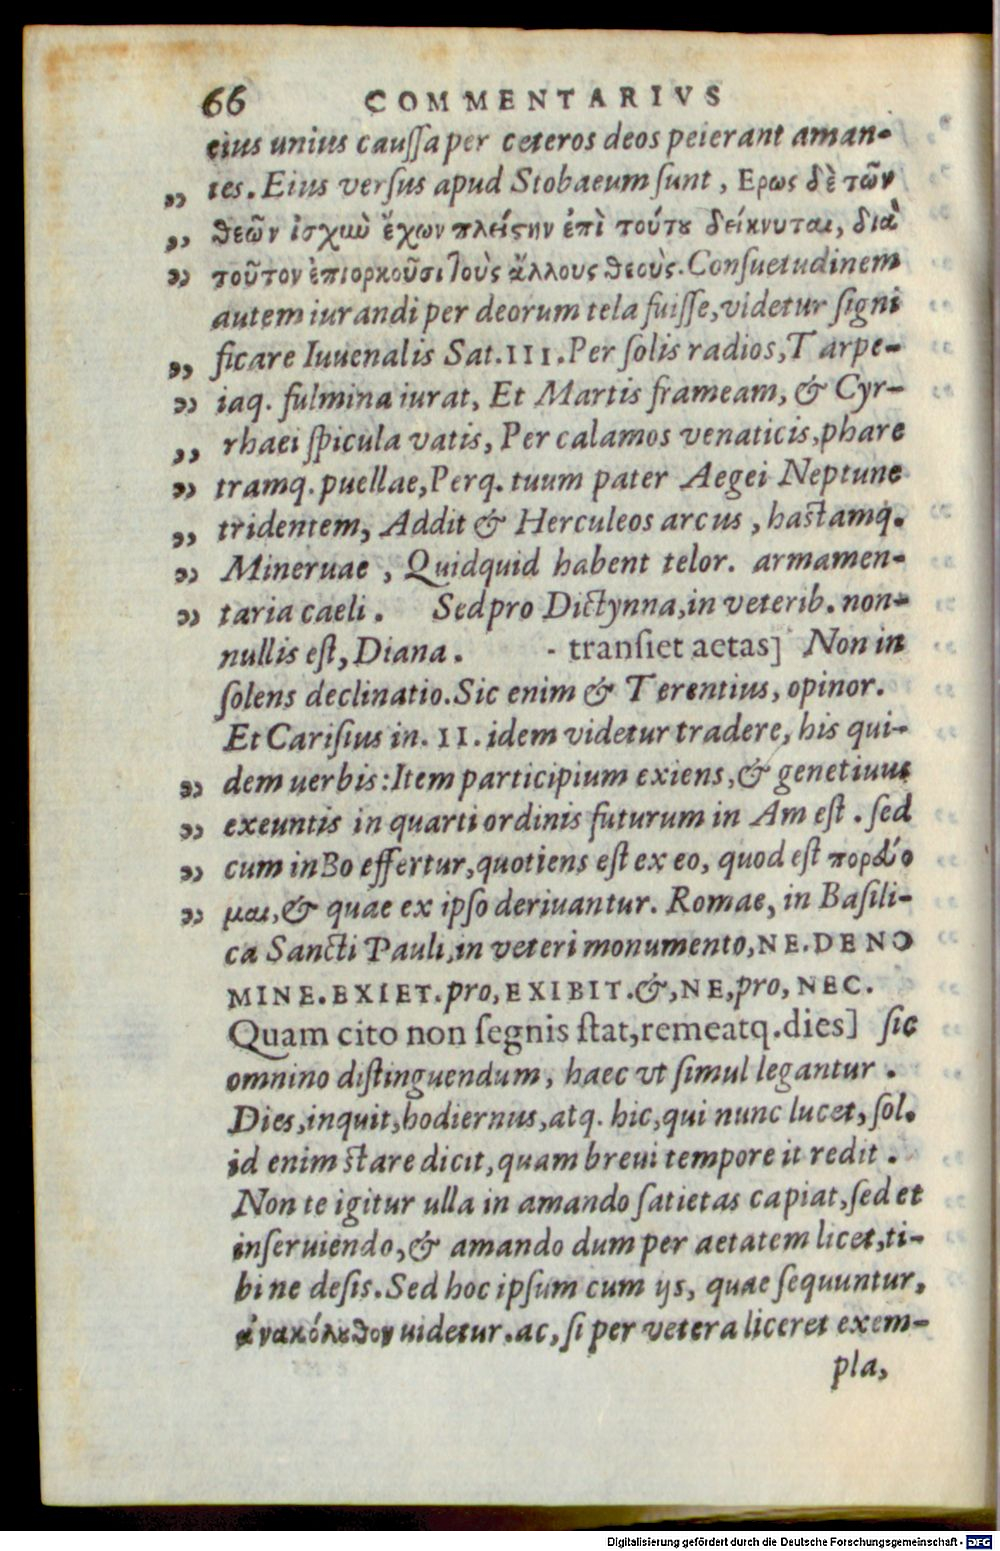 66 COMMENTARIVS
eius unius caussa per ceteros deos peierant aman-
„ tes. Eius versus apud Stobaeum sunt, Ερως δὲ τῶν
„ θεῶν ἰσχὺν ἔχων πλείστην ἐπὶ τούτου δείκνυται, διὰ
„ τοῦτον ἐπιορκοῦσι τοὺς ἄλλους θεούς. Consuetudinem
autem iurandi per deorum tela fuisse, videtur signi
„ ficare Iuuenalis Sat.III. Per solis radios, Tarpe-
„ iaq. fulmina iurat, Et Martis frameam, & Cyr-
„ rhaei spicula vatis, Per calamos venaticis, phare
„ tramq. puellae, Perq. tuum pater Aegei Neptune
„ tridentem, Addit & Herculeos arcus, hastamq.
„ Mineruae, Quidquid habent telor. armamen-
„ taria caeli. Sed pro Dictynna, in veterib. non-
nullis est, Diana. - transiet aetas] Non in
solens declinatio. Sic enim & Terentius, opinor.
Et Carisius in. II. idem videtur tradere, his qui-
„ dem uerbis: Item participium exiens, & genetiuus
„ exeuntis in quarti ordinis futurum in Am est. sed
„ cum in Bo effertur, quotiens est ex eo, quod est πορεύο
„ μαι, & quae ex ipso deriuantur. Romae, in Basili-
ca Sancti Pauli, in veteri monumento, NE.DENO
MINE.EXIET. pro, EXIBIT. &, NE, pro, NEC.
Quam cito non segnis stat, remeatq. dies] sic
omnino distinguendum, haec vt simul legantur.
Dies, inquit, hodiernus, atq. hic, qui nunc lucet, sol.
id enim stare dicit, quam breui tempore it redit.
Non te igitur ulla in amando satietas capiat, sed et
inseruiendo, & amando dum per aetatem licet, ti-
bi ne desis. Sed hoc ipsum cum ijs, quae sequuntur,
ἀνακόλουθον uidetur. ac, si per vetera liceret exem-
pla,
Digitalisierung gefördert durch die Deutsche Forschungsgemeinschaft - DFG